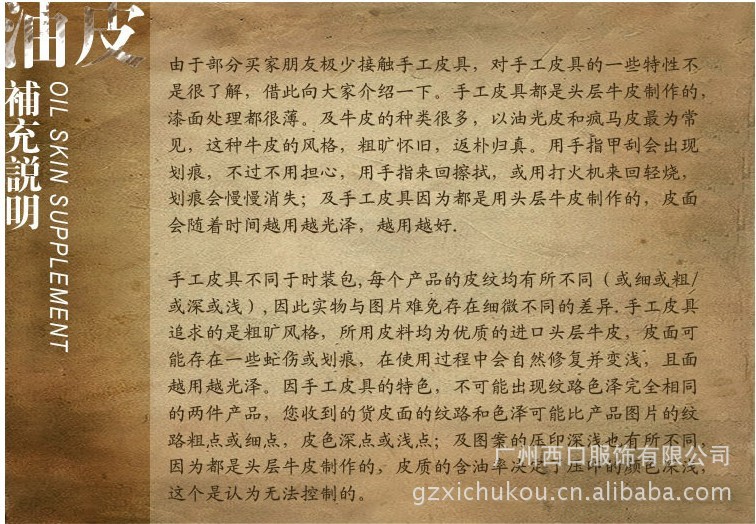 油皮
補充説明
OIL SKIN SUPPLEMENT
由于部分买家朋友极少接触手工皮具，对手工皮具的一些特性不
是很了解，借此向大家介绍一下。手工皮具都是头层牛皮制作的，
漆面处理都很薄。及牛皮的种类很多，以油光皮和疯马皮最为常
见，这种牛皮的风格，粗旷怀旧，返朴归真。用手指甲刮会出现
划痕，不过不用担心，用手指来回擦拭，或用打火机来回轻烧，
划痕会慢慢消失；及手工皮具因为都是用头层牛皮制作的，皮面
会随着时间越用越光泽，越用越好.
手工皮具不同于时装包,每个产品的皮纹均有所不同（或细或粗/
或深或浅）,因此实物与图片难免存在细微不同的差异.手工皮具
追求的是粗旷风格，所用皮料均为优质的进口头层牛皮，皮面可
能存在一些虻伤或划痕，在使用过程中会自然修复并变浅，且面
越用越光泽。因手工皮具的特色，不可能出现纹路色泽完全相同
的两件产品，您收到的货皮面的纹路和色泽可能比产品图片的纹
路粗点或细点，皮色深点或浅点；及图案的压印深浅也有所不同，
因为都是头层牛皮制作的，皮质的含油率决定了压印的颜色深浅，
这个是认为无法控制的。
广州西口服饰有限公司
gzxichukou.cn.alibaba.com